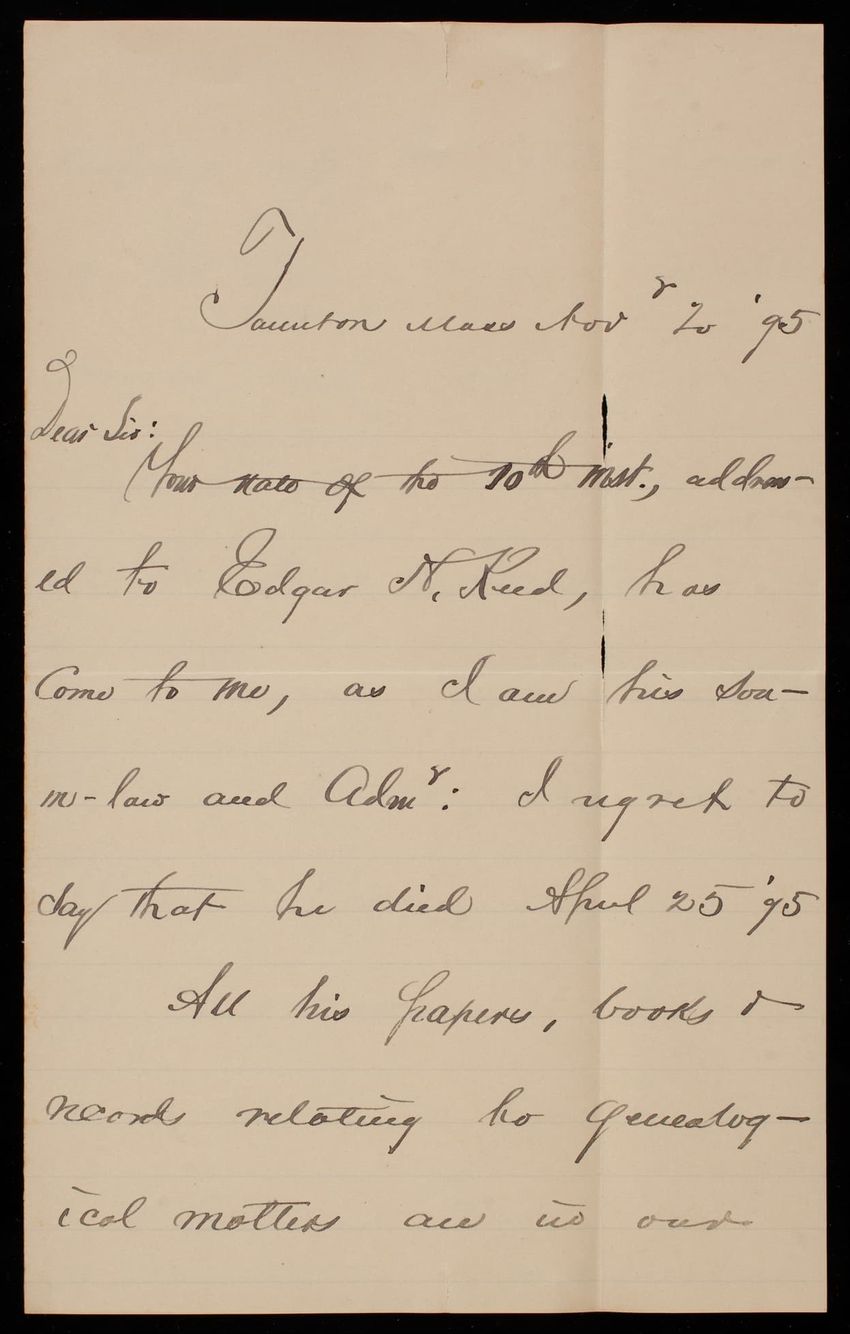 Taunton Mass Nov r 20 '95
Dear Sir:
Your note of the 10th inst., address-
ed to Edgar N. Reed, has
come to me, as I am his son-
in-law and Admr: I regret to
say that he died April 25 '95
All his papers, books &
records relating to Genealog-
ical matters are in our